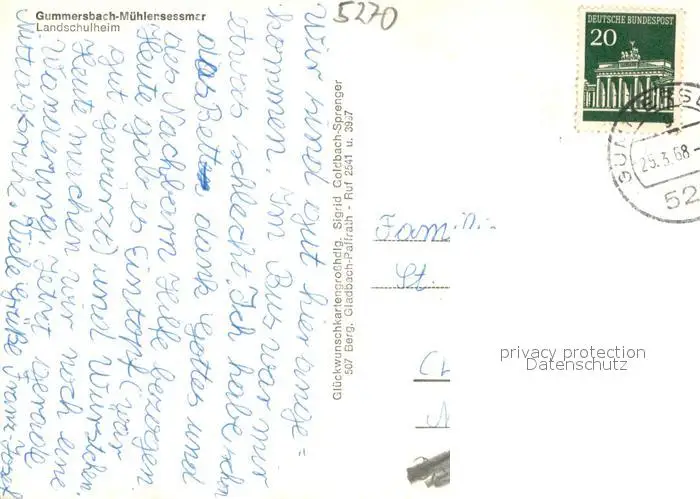 Gummersbach-Mühlensessmar
Landschulheim
5270
Wir sind gut hier ange=
kommen. Im Bus war mir
etwas schlecht. Ich habe schon
das Bett dank Gottes und
des Nachbarn Hilfe bezogen.
Heute gab es Eintopf (war
gut gewürzt) und Würstchen.
Heute machen wir noch eine
Wanderung. Jetzt gerade
Mittagsruhe. Viele Grüße Franz-Josef
Glückwunschkartengroßhdlg. Sigrid Goldbach-Sprenger
507 Berg. Gladbach-Paffrath - Ruf 2541 u. 3937
DEUTSCHE BUNDESPOST
20
25.3.68
52
Fam.
St.
privacy protection
Datenschutz